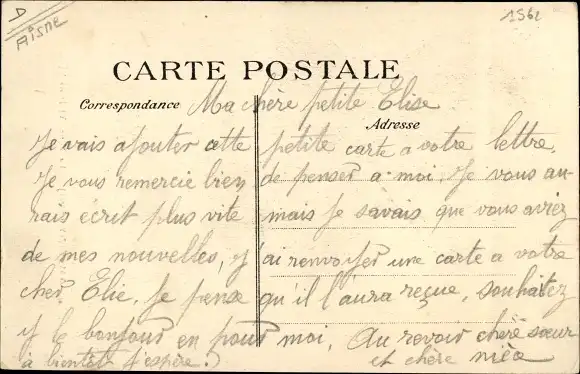 D
Aisne
1562
CARTE POSTALE
Correspondance Ma chère petite Elise
Adresse
Je vais ajouter cette petite carte a votre lettre,
Je vous remercie bien de penser a moi. Je vous au-
rais écrit plus vite mais je savais que vous aviez
de mes nouvelles, j'ai renvoyer une carte a votre
cher Elie. Je pense qu'il l'aura reçue, souhaitez
y le bonjour en pour moi, Au revoir chère sœur
à bientot j'espère. et chère nièce